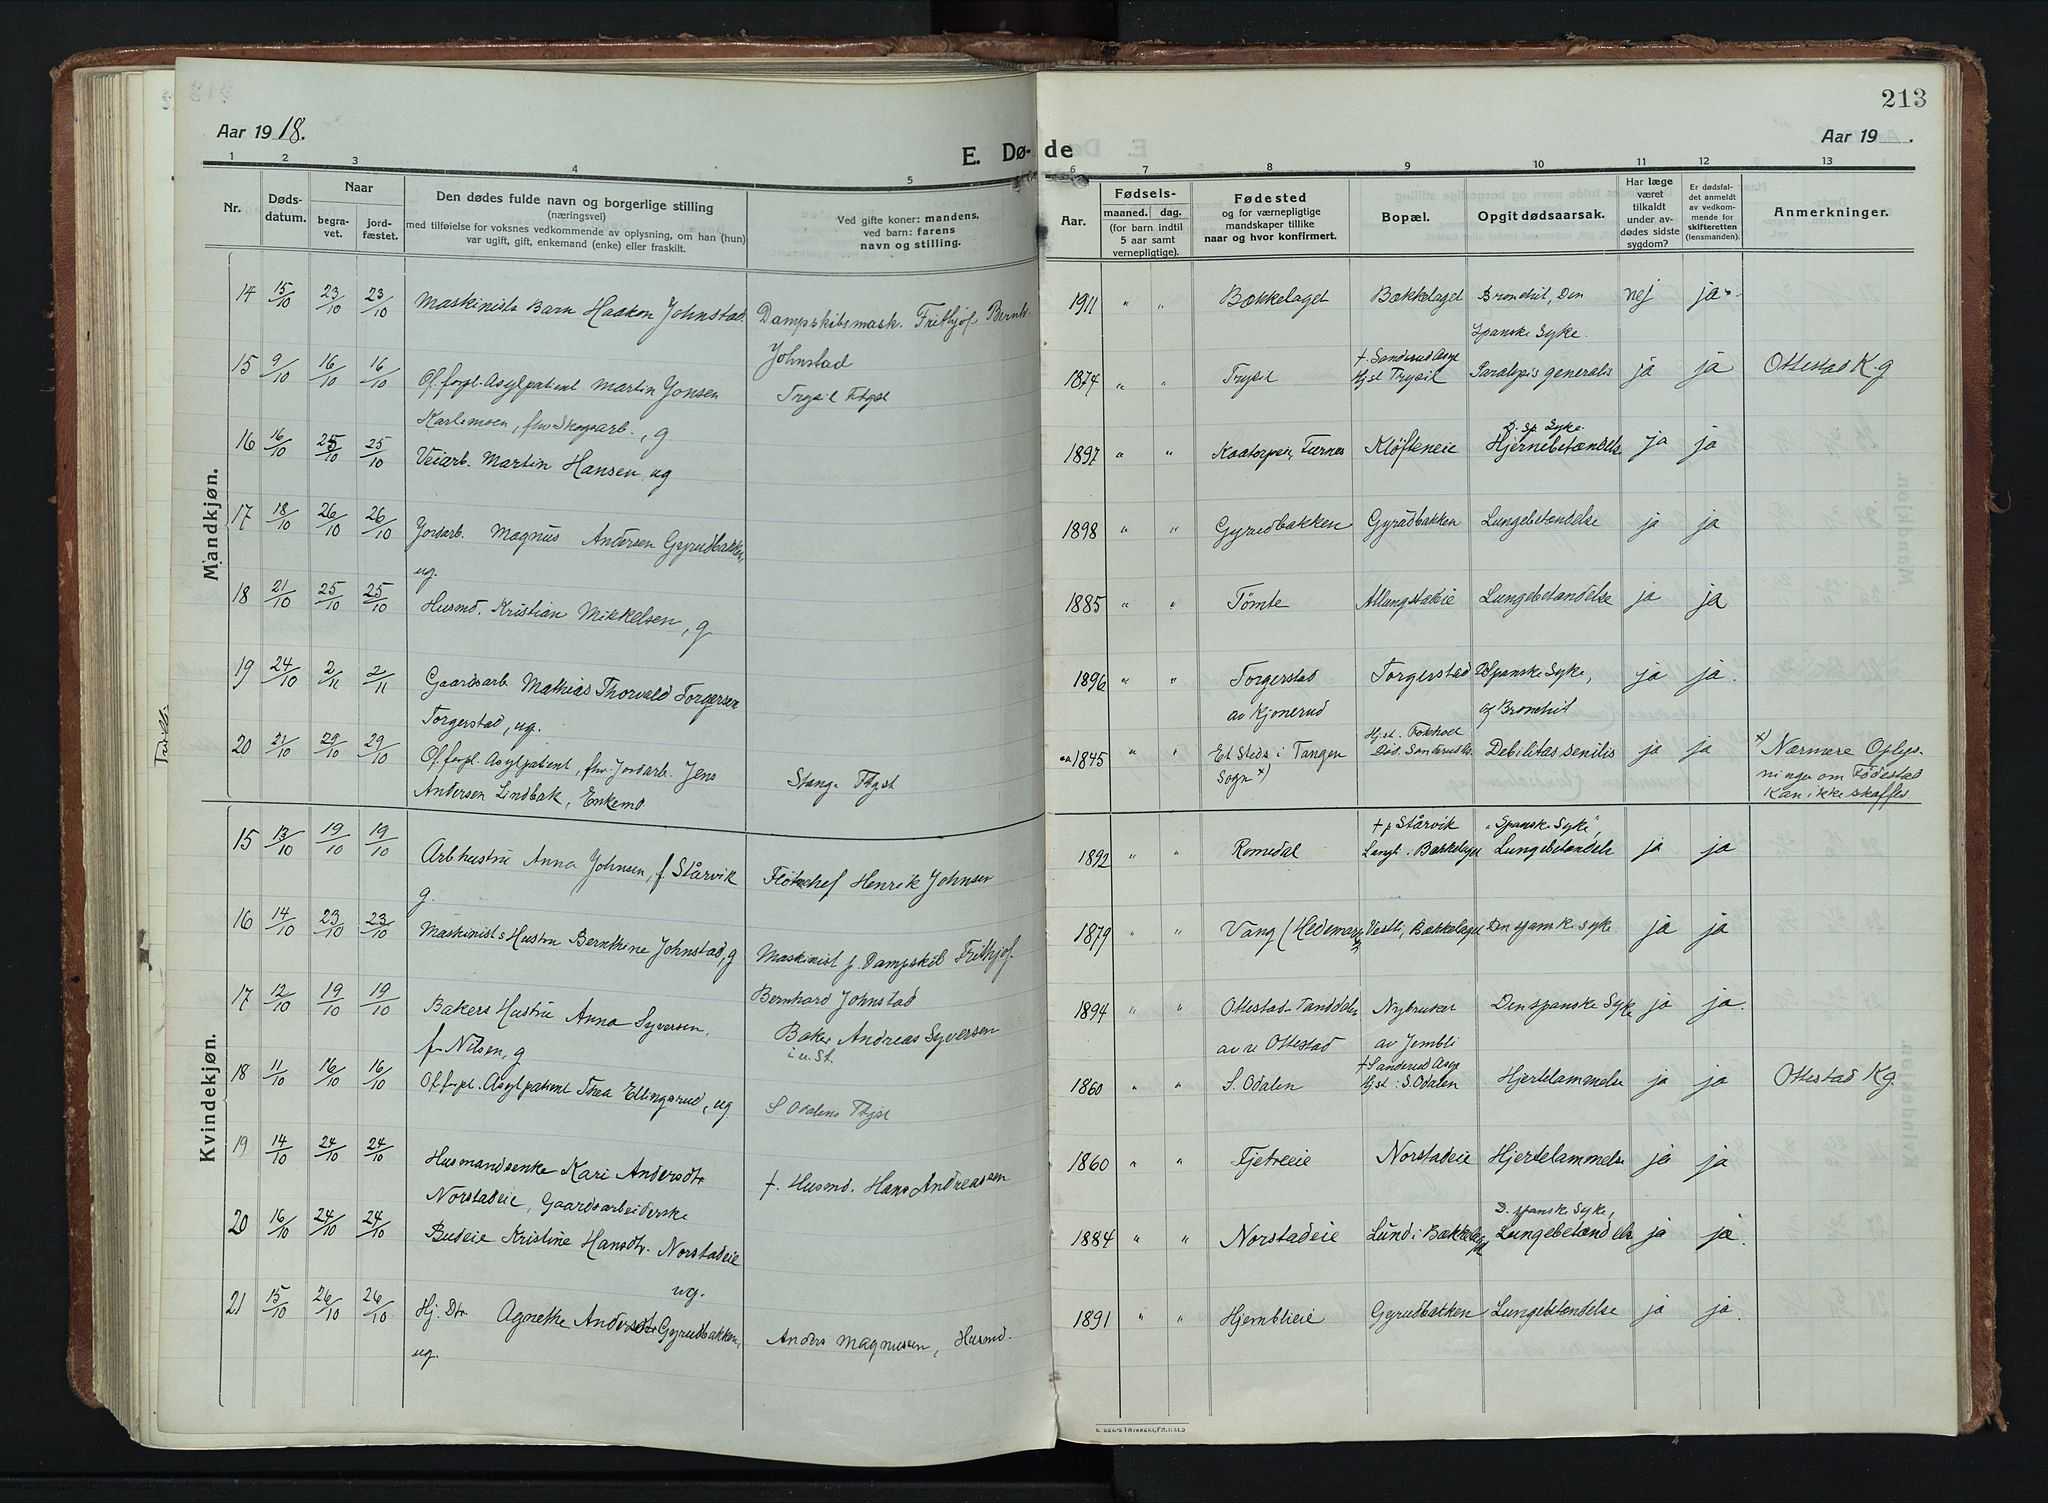 213
Aar 1918.
Aar 19
E. Dø- de
1 2 3 4 5 6 7 8 9 10 11 12 13
Nr.
Døds-
datum.
Naar
begra-
vet.
jord-
fæstet.
Den dødes fulde navn og borgerlige stilling
(næringsvei)
med tilføielse for voksnes vedkommende av oplysning, om han (hun)
var ugift, gift, enkemand (enke) eller fraskilt.
Ved gifte koner: mandens,
ved barn: farens
navn og stilling.
Aar.
Fødsels-
maaned. dag.
(for barn indtil
5 aar samt
vernepligtige).
Fødested
og for værnepligtige
mandskaper tillike
naar og hvor konfirmert.
Bopæl.
Opgit dødsaarsak.
Har læge
været
tilkaldt
under av-
dødes sidste
sygdom?
Er dødsfal-
det anmeldt
av vedkom-
mende for
skifteretten
(lensmanden).
Anmerkninger.
Mandkjøn.
14 15/10 23/10 23/10 Maskinists Barn Haakon Johnstad. Dampskibsmask. Frithjof Bernh. 1911 " " Bækkelaget Bækkelaget Bronchit, Den nej ja.
Johnstad Spanske Syke.
15 9/10 16/10 16/10 Of. forpl. Asylpatient Martin Jonsen Trysil Ftgst 1874 " " Trysil † Sanderud Asyl Paralysis generalis ja ja Ottestad K.g
Karlsmoen, fhv Skogsarb., g Hjst Trysil
16 16/10 25/10 25/10 Veiarb. Martin Hansen ug 1897 " " Kaatorpei, Furnes Kløfteneie D. Sp. Syke. ja ja
Hjernebetændelse
17 18/10 26/10 26/10 Jordarb. Magnus Andersen Gyrudbakken, 1898 " " Gyrudbakken Gyrudbakken Lungebetændelse ja ja
ug.
18 21/10 25/10 25/10 Husmd. Kristian Mikkelsen, g 1885 " " Tømte Atlungstadeie Lungebetændelse ja ja
19 24/10 2/11 2/11 Gaardsarb Mathias Thorvald Torgersen 1896 " " Torgerstad Torgerstad D Spanske Syke, ja ja.
Torgerstad, ug. av Kjonerud og Bronchit
20 21/10 29/10 29/10 Of. forpl. Asylpatient, fhv. Jordarb. Jens Stange Ftgst ca 1845 " " Et Steds i Tangen Hjst. Debilitas senilis ja ja x) Nærmere Oplys-
Andersen Lindbak, Enkemd Sogn x) ninger om Fødestad
Kan ikke skaffes.
Kvindekjøn.
15 13/10 19/10 19/10 Arbhustru Anna Johnsen, f Stårvik Henrik Johnsen 1892 " " Romedal † p Stårvik "Spanske Syke", ja ja
g. Bækkelaget Lungebetændels
16 14/10 23/10 23/10 Maskinists Hustru Bernthine Johnstad, g Maskinist p. Dampskib Frithjof 1879 " " Vang (Hedemark) Vestli, Bækkelaget Den spanske syke ja ja
Bernhard Johnstad
17 12/10 19/10 19/10 Bakers Hustru Anna Syversen, Baker Andreas Syversen 1894 " " Ottestad Nybruket Den spanske Syke ja ja.
f. Nilsen, g i u. St. Ottestad av Jembli
18 11/10 16/10 16/10 Of. forpl. Asylpatient Thea Ellingsrud, ug S Odalens Ftgst 1860 " " S. Odalen † Sanderud Asyl Hjertelammelse ja ja Ottestad Kg.
Hjst: S. Odalen
19 14/10 24/10 24/10 Husmandsenke Kari Andersdtr †. Husmd. Hans Andreassen 1860 " " Fjetreeie Norstadeie Hjertelammelse ja ja
Norstadeie, Gaardsarbeiderske
20 16/10 24/10 24/10 Budeie Kristine Hansdtr. Norstadeie 1884 " " Norstadeie Lund i Bækkelaget D. spanske Syke, ja ja.
ug. Lungebetændels
21 15/10 26/10 26/10 Hj. Dtr. Agnethe Andersdtr Gyrudbakken, Anders Magnussen, Husmd. 1891 " " Hjemblieie Gyrudbakken Lungebetændelse ja ja.
ug.